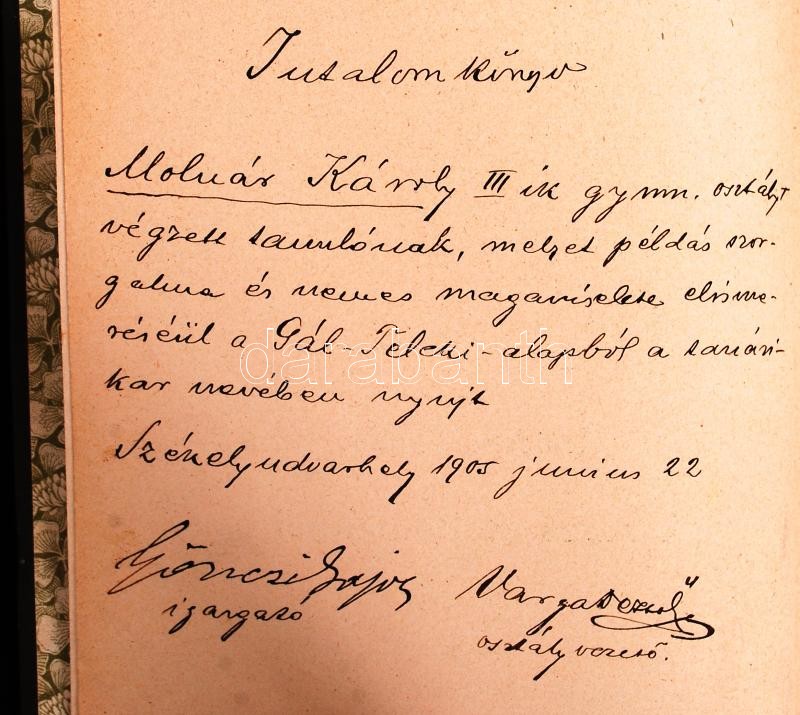 Jutalomkönyv
Molnár Károly III ik gymn. osztályt
végzett tanulónak, melyet példás szor-
galma és nemes magaviselete elisme-
réséül a Gál-Teleki-alapból a tanári-
kar nevében nyújt
Székelyudvarhely 1905 junius 22
Gönczi Lajos
igazgató
Varga Dezső
osztályvezető.
darabanth